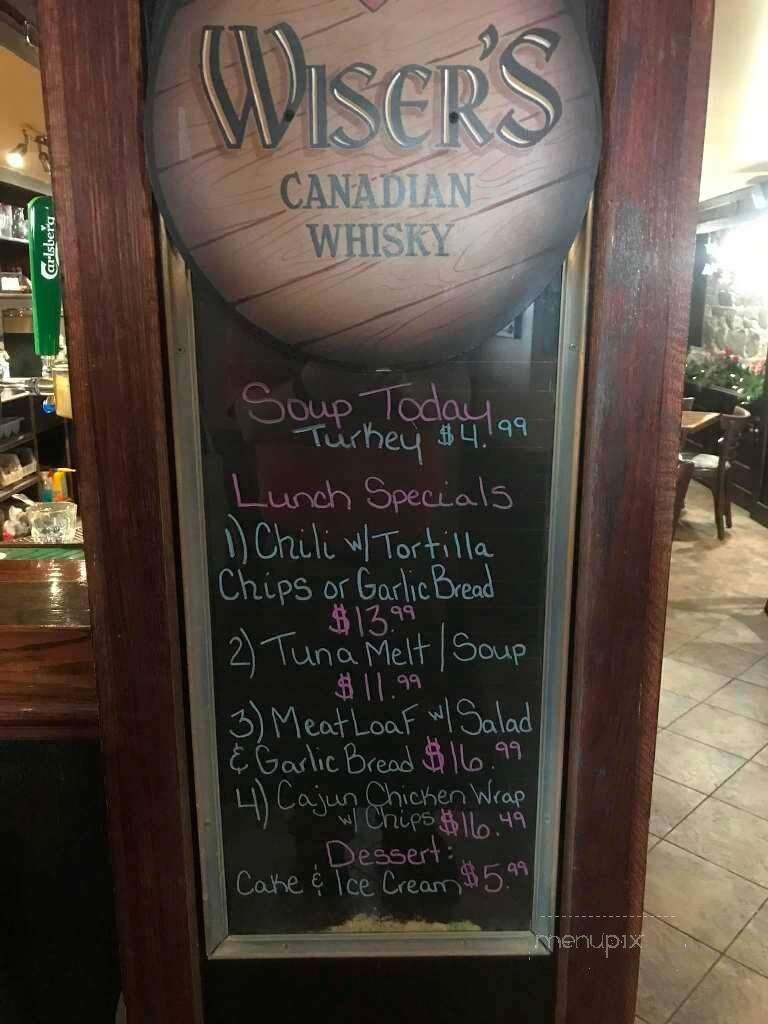 WISER'S
CANADIAN
WHISKY
Carlsberg
Soup Today
Turkey $4.99
Lunch Specials
1) Chili w/ Tortilla
Chips or Garlic Bread
$13.99
2) Tuna Melt / Soup
$11.99
3) Meat Loaf w/ Salad
& Garlic Bread $16.99
4) Cajun Chicken Wrap
w/ Chips $16.49
Dessert:
Cake & Ice Cream $5.99
menupix